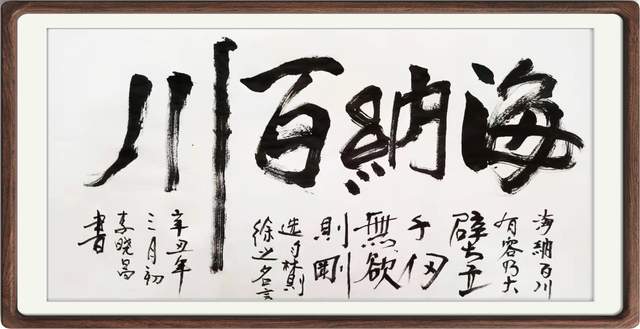 海納百川
海納百川
有容乃大
壁立
千仞
無欲
則剛
林則
徐之名言
辛丑年
三月初
李晓昌
書